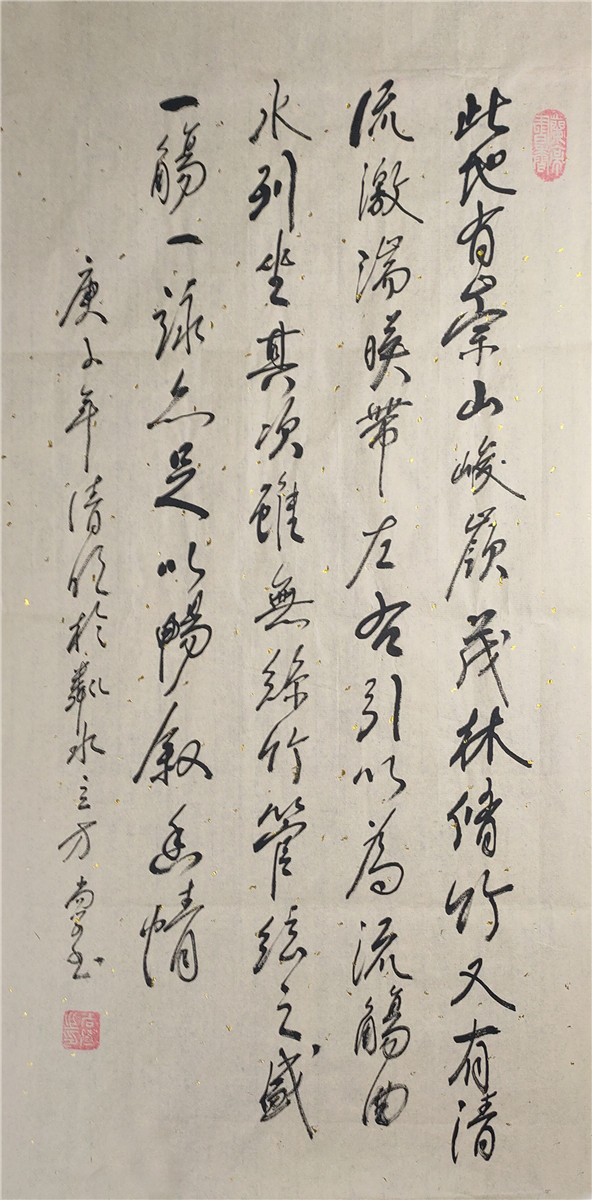 此地有崇山峻嶺茂林脩竹又有清
流激湍暎帶左右引以為流觴曲
水列坐其次雖無絲竹管弦之盛
一觴一詠亦足以暢敘幽情
庚子年清明於鄰水立方